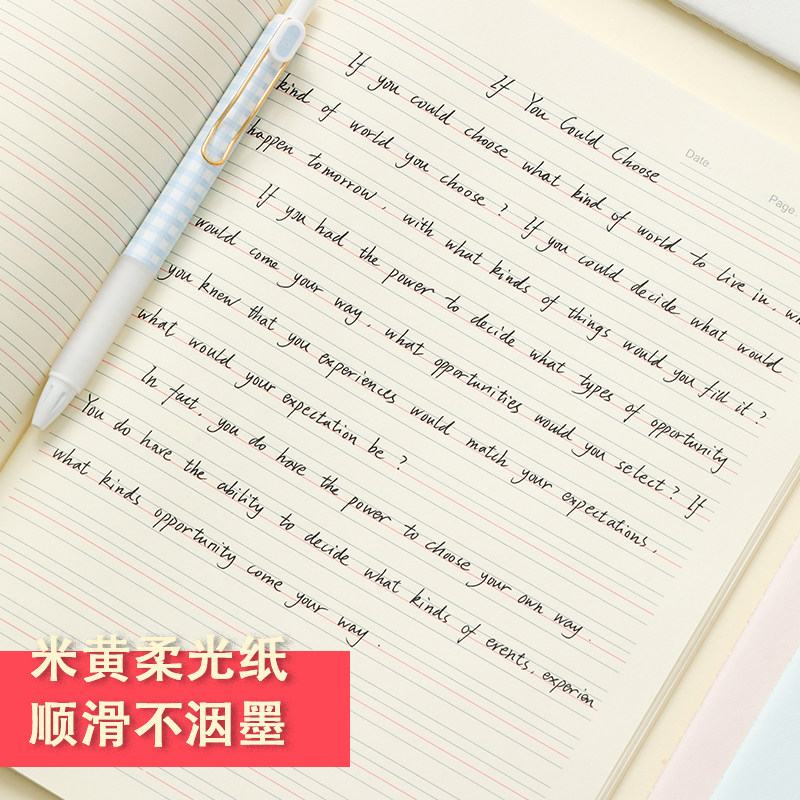 If You Could Choose
Date
Page
If you could choose what kind of world to live in,
kind of world you choose? If you could decide what would
happen tomorrow, with what kinds of things would you fill it?
If you had the power to decide what types of opportunity
would come your way, what opportunities would you select? If
you knew that you experiences would match your expectations,
what would your expectation be?
In fact, you do have the power to choose your own way.
You do have the ability to decide what kinds of events, experien
what kinds opportunity come your way.
米黄柔光纸
顺滑不洇墨